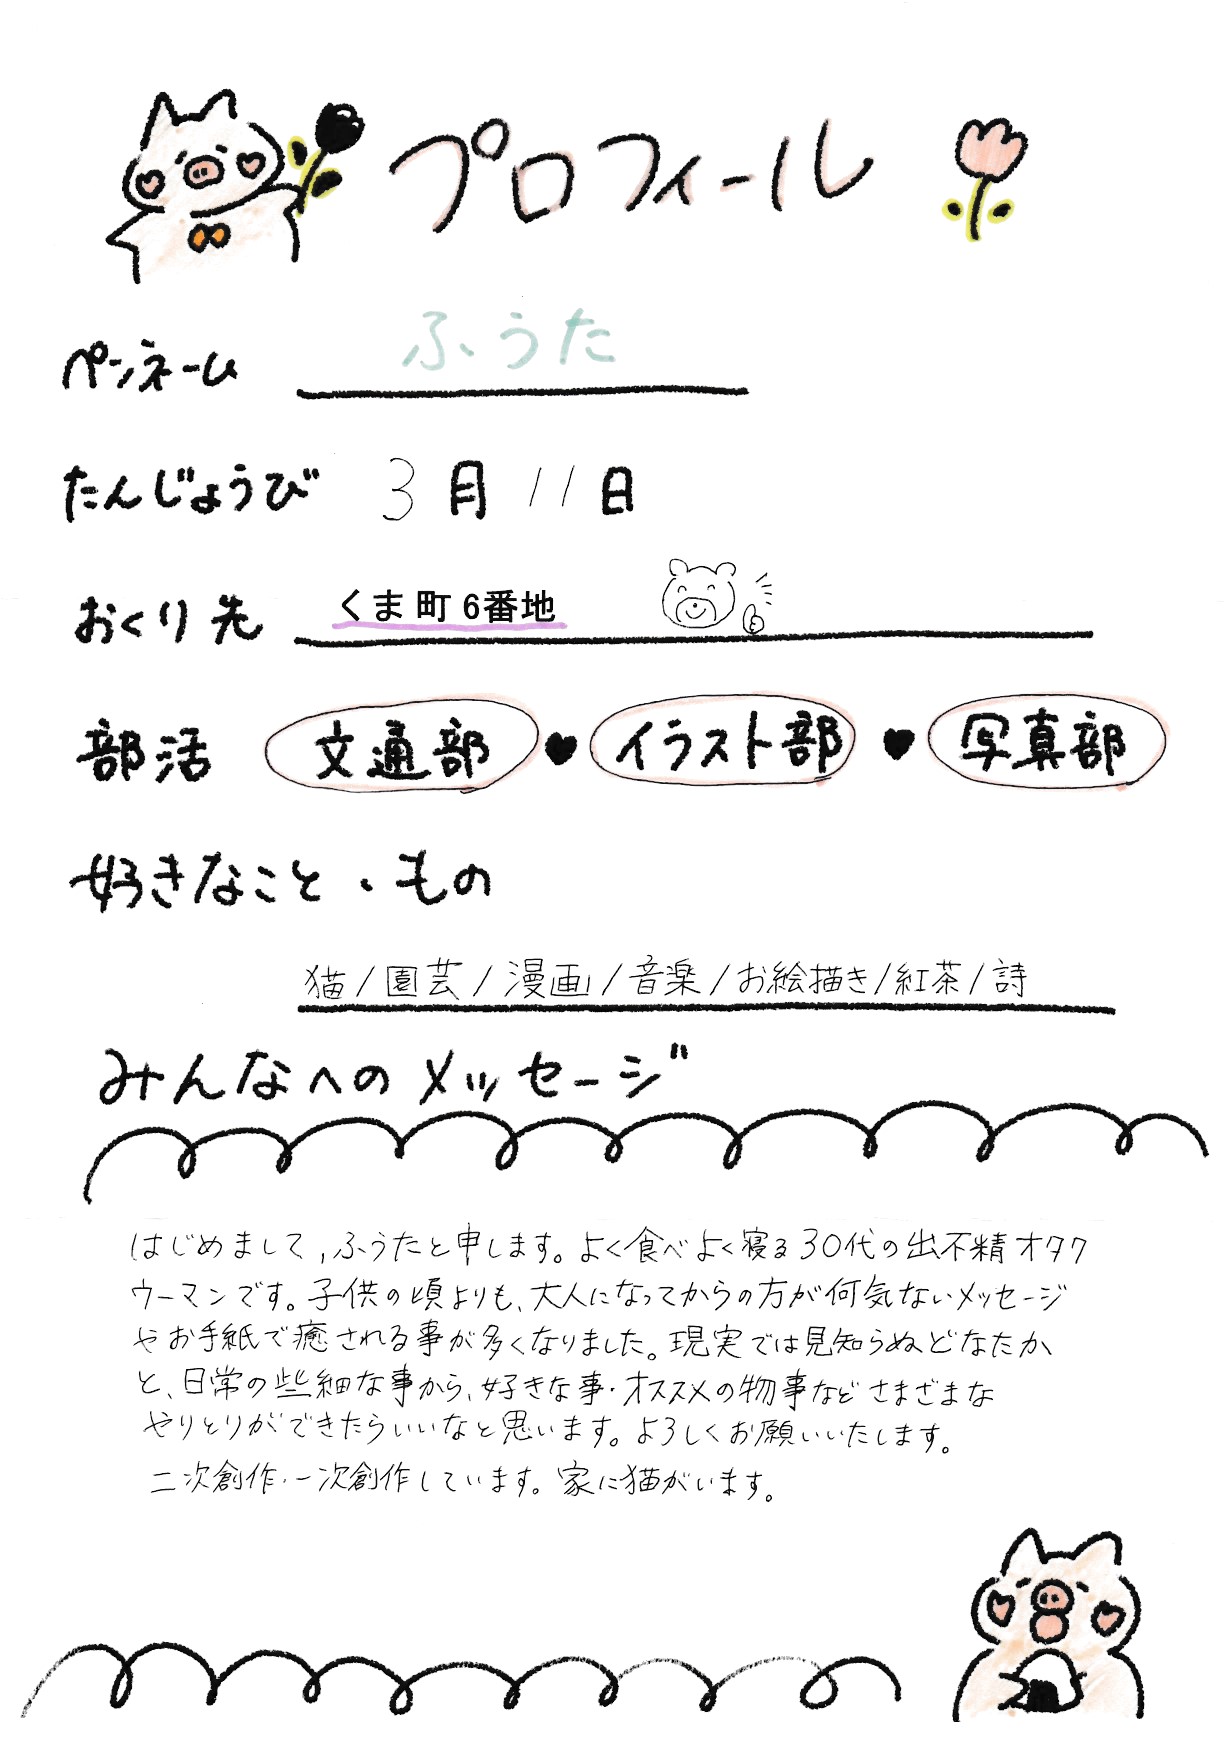 プロフィール
ペンネーム ふうた
たんじょうび 3月11日
おくり先 くま町 6番地
部活 文通部♥イラスト部♥写真部
好きなこと・もの
猫/園芸/漫画/音楽/お絵描き/紅茶/詩
みんなへのメッセージ
はじめまして,ふうたと申します。よく食べよく寝る30代の出不精オタク
ウーマンです。子供の頃よりも、大人になってからの方が何気ないメッセージ
やお手紙で癒される事が多くなりました。現実では見知らぬどなたか
と、日常の些細な事から、好きな事・オススメの物事などさまざまな
やりとりができたらいいなと思います。よろしくお願いいたします。
二次創作・一次創作しています。家に猫がいます。